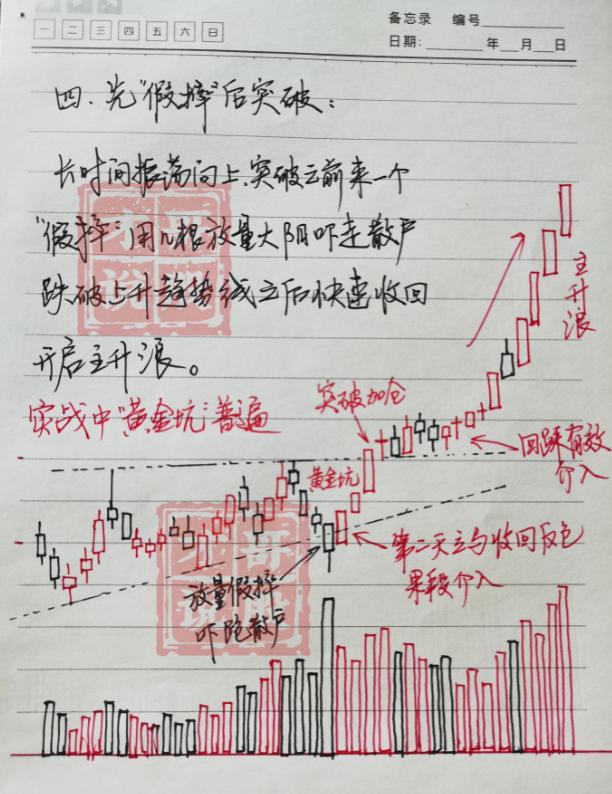 备忘录 编号
一 二 三 四 五 六 日
日期: 年 月 日
四、先"假摔"后突破:
长时间振荡向上,突破之前来一个
"假摔"用几根放量大阴吓走散户
跌破上升趋势线之后快速收回
开启主升浪。
实战中"黄金坑"普遍
突破加仓
主升浪
黄金坑
回踩有效
介入
第二天立马收回反包
果断介入
放量假摔
吓跑散户